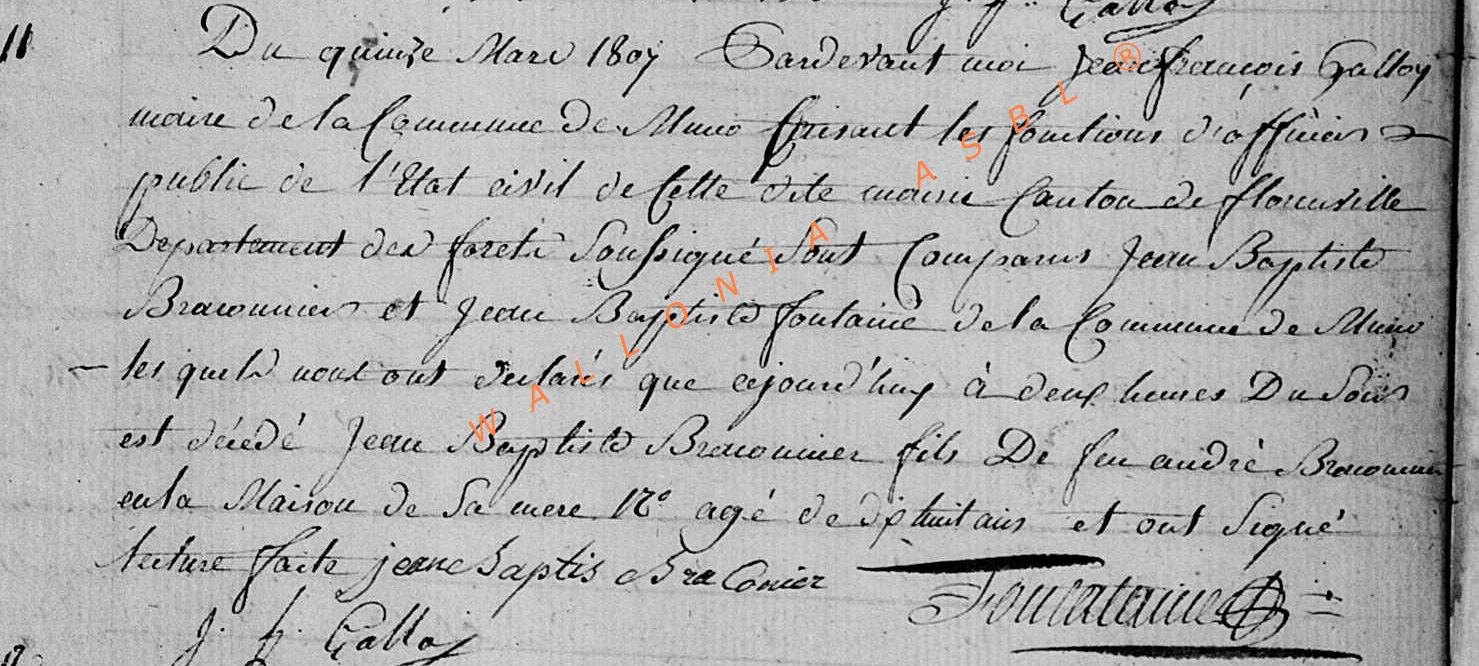 J. f. Galloy
11 Du quinze Mars 1807 Pardevant moi Jean françois Galloy
maire de la Commune de Muno faisant les fonctions d'officiers
public de l'Etat civil de Cette dite mairie Canton de florenville
Departement des forets Soussigné Sont Comparus Jean Baptiste
Braconnier et Jean Baptiste fontaine de la Commune de Muno
les quels nous ont declarés que cejourd'huy à deux heures Du Soir
est décédé Jean Baptiste Braconnier fils De feu andré Braconnier
en la Maison de Sa mere N° agé de dixhuit ans et ont Signé
lecture faite jean baptis Braconier Fontaine
J. f. Galloy
WALLONIA ASBL ®